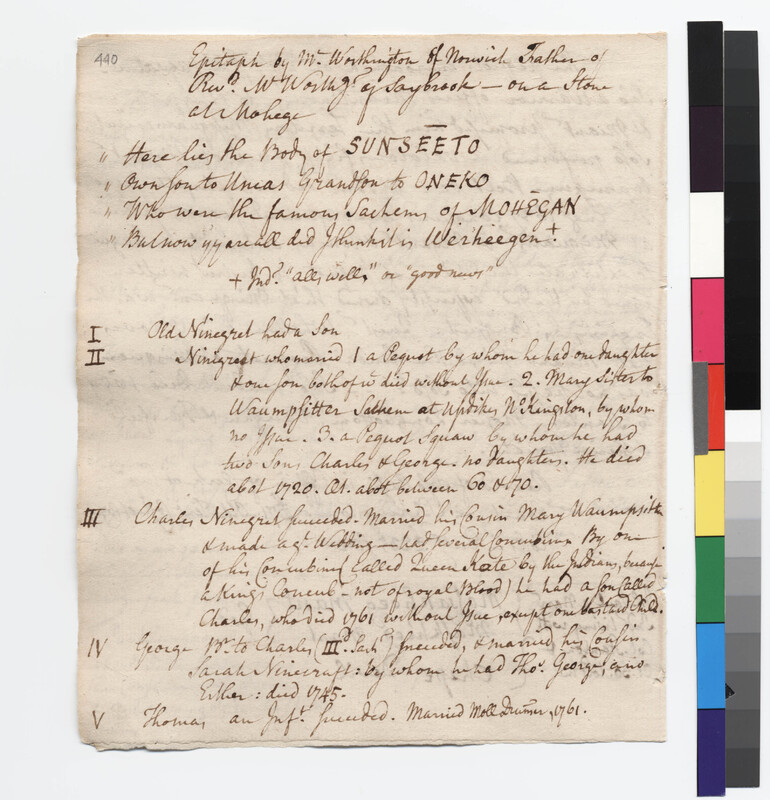 440
Epitaph by Mr. Worthington of Norwich Father of
Revd. Mr Worthgn. of Saybrook — on a Stone
at Mohege
" Here lies the Body of SUNSEETO
" Own Son to Uncas Grandson to ONEKO
" Who were the famous Sachems of MOHEGAN
" But now yy are all ded I think it is Werheegen +.
+ Indn. "all's well" or "good news"
I Old Ninegret had a Son
II Ninegret who married 1 a Pequot by whom he had one daughter
& one son both of wc died without Issue. 2. Mary Sister to
Waumpsitter Sachem at Updikes No Kingston, by whom
no Issue. 3. a Pequot Squaw by whom he had
two Sons Charles & George. no daughters. He died
abot 1720. Æt. abot between 60 & 70.
III Charles Ninegret succeeded. Married his Cousin Mary Waumpsitter
& made a gt. Wedding — had several Concubines By one
of his Concubines (called Queen Kate by the Indians, because
a King's Concub — not of royal Blood) he had a Son called
Charles, who died 1761 without Issue, except one bastard Child.
IV George Br. to Charles (IIId. Sach.) succeeded, & married his Cousin
Sarah Ninecraft: by whom he had Thos. George,
Esther: died 1745.
V Thomas an Inft. succeeded. Married Moll Drummer, 1761.